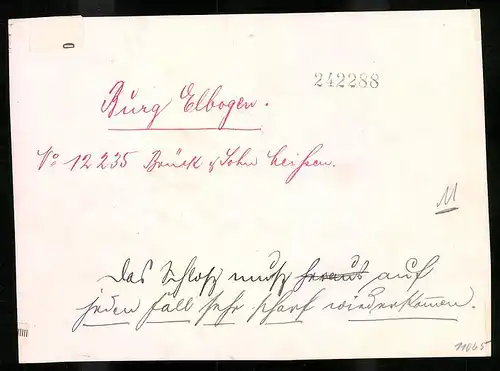 242288
Burg Elbogen.
No 12235 Brück & Sohn Meißen.
M
Das Schloß muß heraus auf
jeden fall sehr scharf wiederkommen.
11065